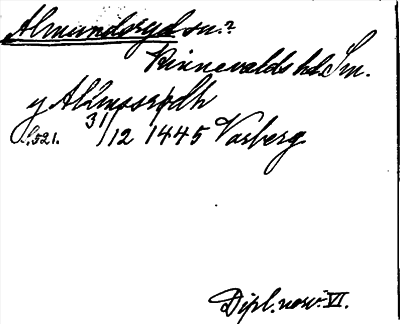 Almundsryd sn.?
Kinnevalds hd. Sm.
y Almosrydh
s. 521. 31/12 1445 Varberg
Dipl. norv. VI.